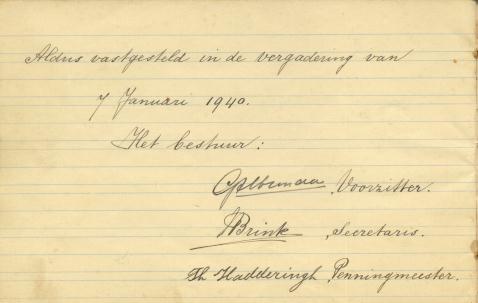 Aldus vastgesteld in de vergadering van
7 Januari 1940.
Het bestuur:
Voorzitter.
HBrink, Secretaris.
Th Hadderingh, Penningmeester.